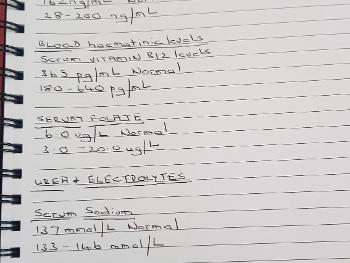 162 ng/mL Nor
28-200 ng/mL
BLOOD haematinic levels
Serum VITAMIN B12 levels
365 pg/mL Normal
180-640 pg/mL
SERUM FOLATE
6.0 ug/L Normal
3.0-20.0 ug/L
UREA + ELECTROLYTES
Serum Sodium
137 mmol/L Normal
133-146 mmol/L